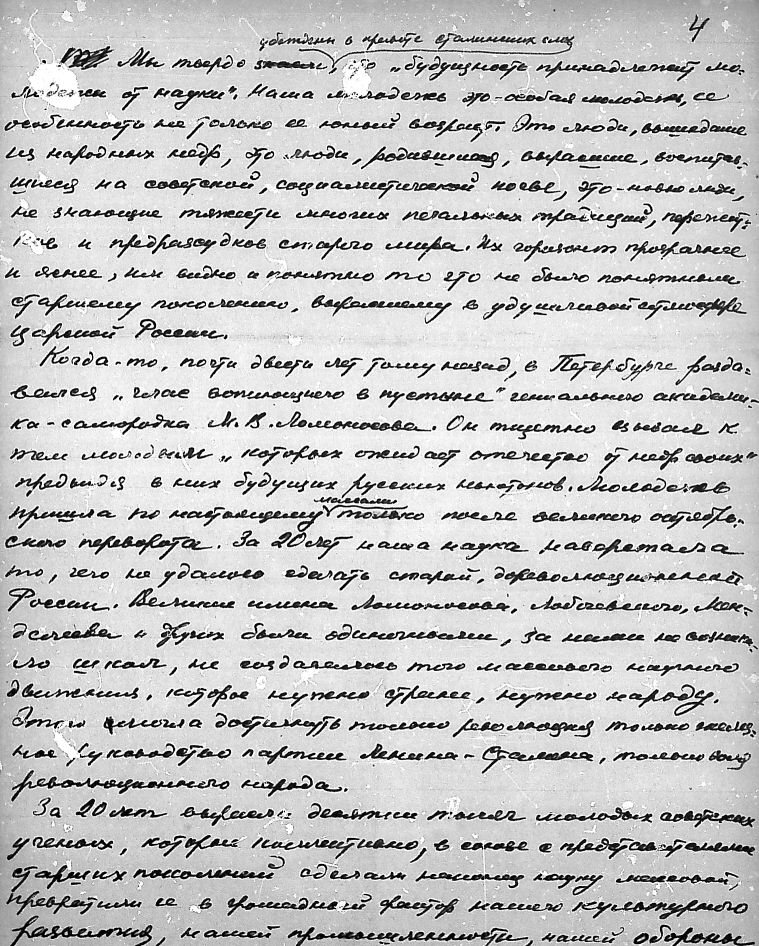 4
убеждены в правоте сталинских слов
Мы твердо знаем, что „будущность принадлежит мо-
лодежи от науки". Наша молодежь это-особая молодежь, ее
особенность не только ее юный возраст. Это люди, вышедшие
из народных недр, это люди, родившиеся, выросшие, воспитав-
шиеся на советской, социалистической почве, это-новые люди,
не знающие тяжести многих печальных традиций, пережит-
ков и предрассудков старого мира. Их горизонт прозрачнее
и яснее, им видно и понятно то что не было понятным
старшему поколению, выросшему в удушливой атмосфере
царской России.
Когда-то, почти двести лет тому назад, в Петербурге разда-
вался „глас вопиющего в пустыне" гениального академи-
ка-самородка М. В. Ломоносова. Он тщетно взывал к
тем молодым „которых ожидает отечество от недр своих"
предвидя в них будущих русских ньютонов. Молодежь
массами
пришла по настоящему только после великого октябрь-
ского переворота. За 20 лет наша наука наверстала
то, чего не удалось сделать старой, дореволюционной
России. Великие имена Ломоносова, Лобачевского, Мен-
делеева и других были одиночками, за ними не возника-
ло школ, не создавалось того массового научного
движения, которое нужно стране, нужно народу.
Этого смогла достигнуть только революция только желез-
ное руководство партии Ленина-Сталина, только воля
революционного народа.
За 20 лет выросли десятки тысяч молодых советских
ученых, которые коллективно, в союзе с представителями
старших поколений сделали наконец науку массовой,
превратили ее в громадный фактор нашего культурного
развития, нашей промышленности, нашей обороны